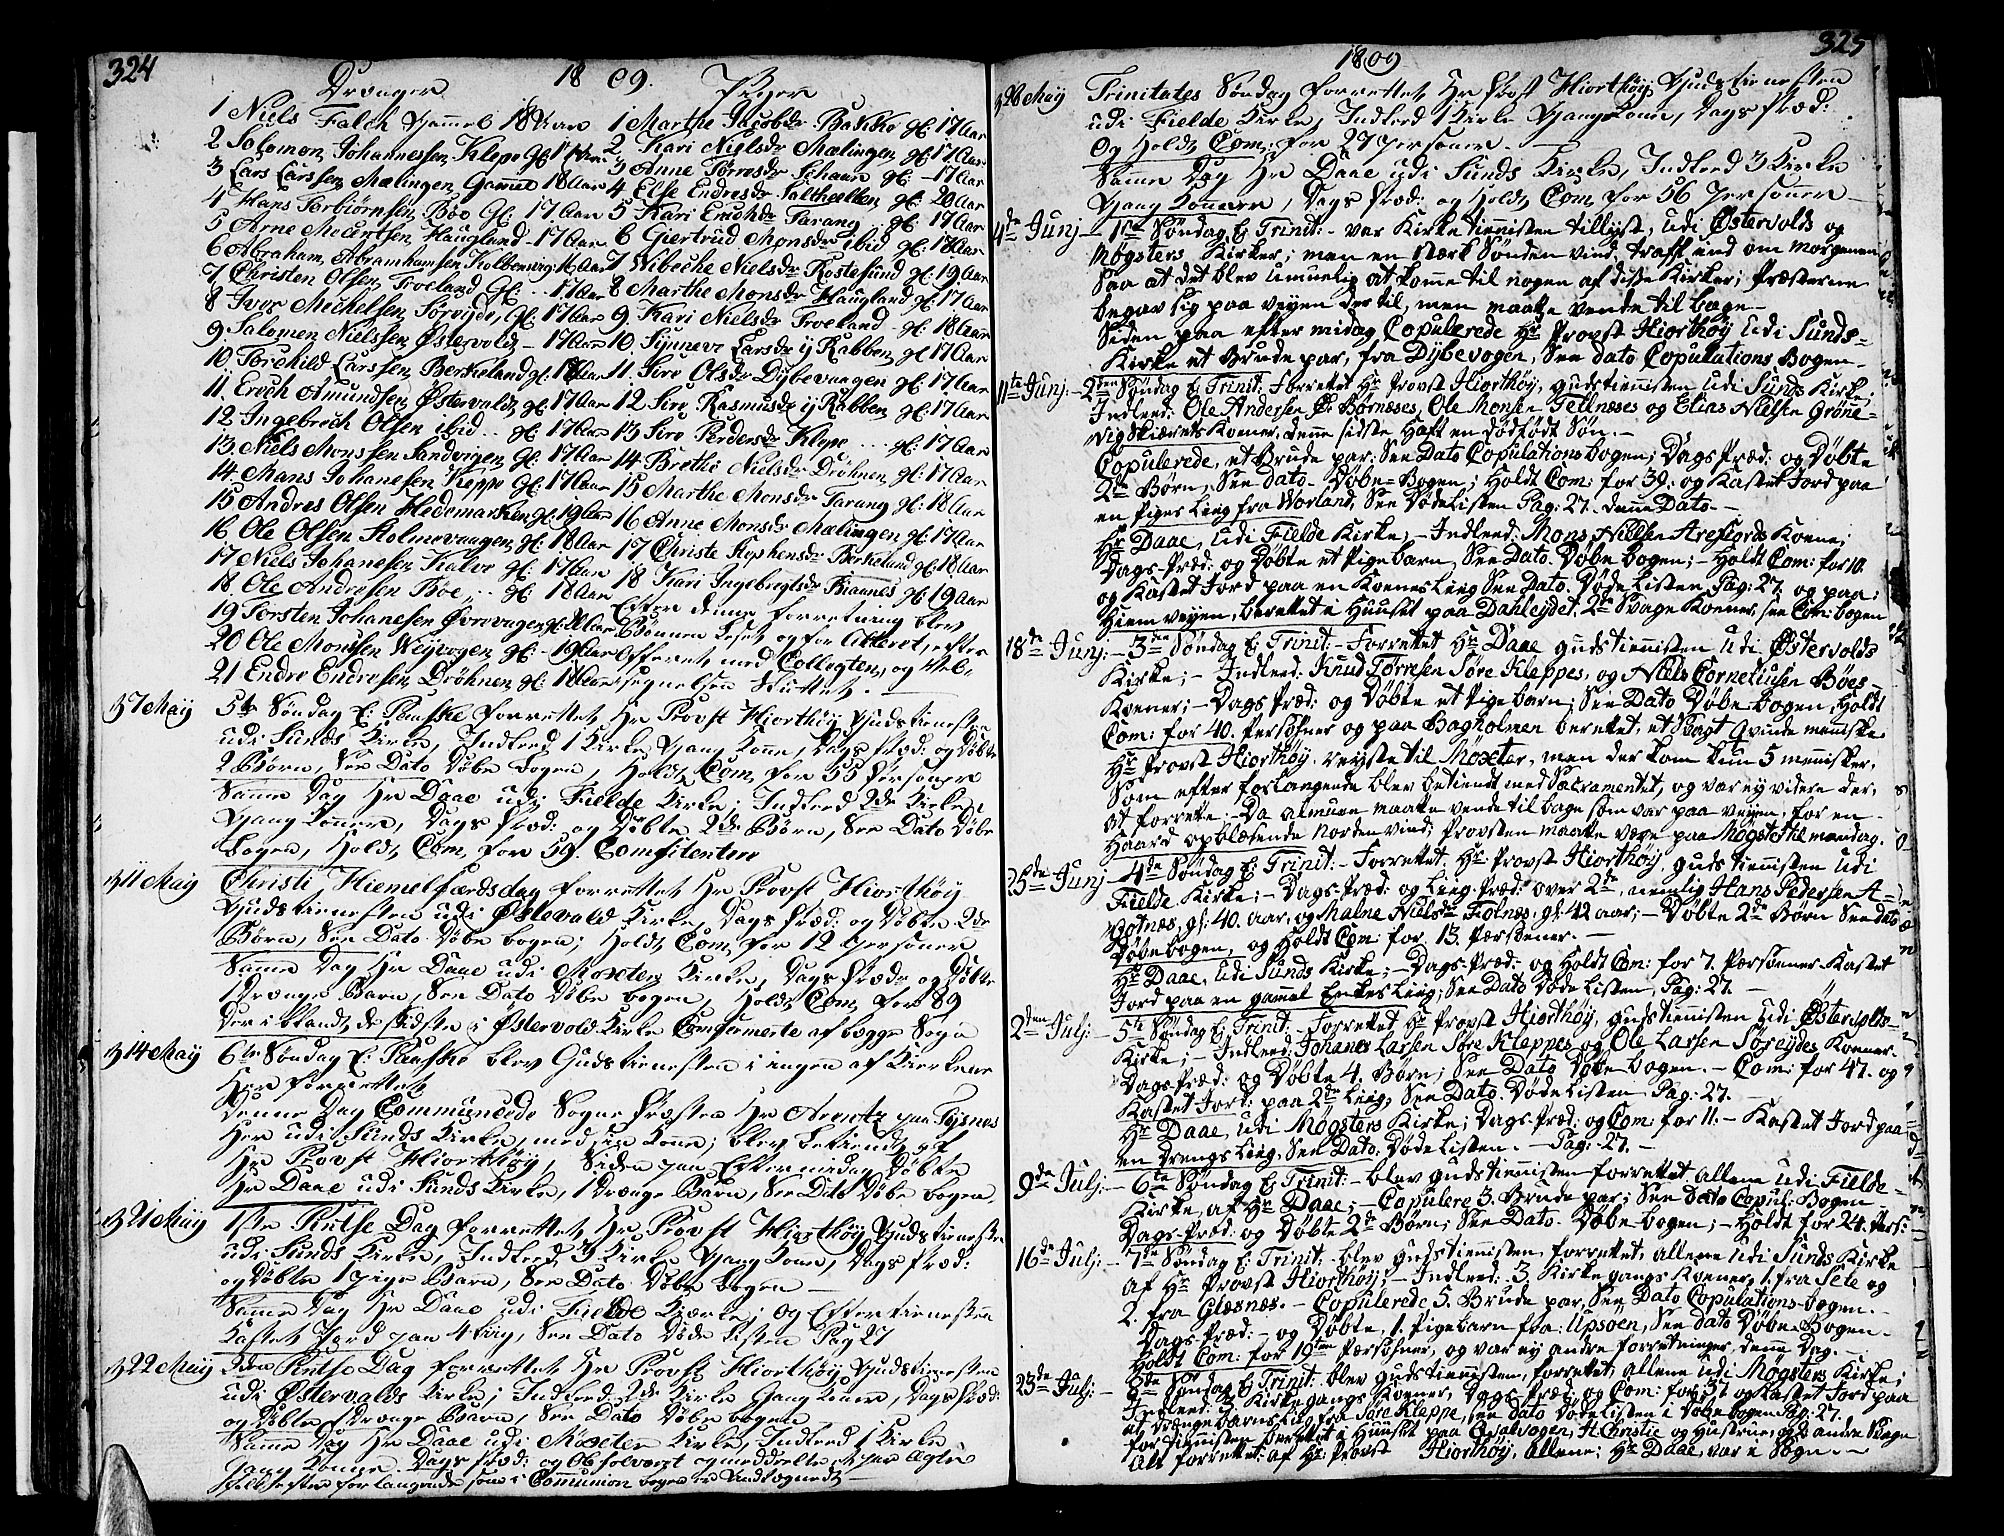 324
Drænger 1809. Piger
1 Niels Falch Gammel 18 Aar
2 Salomon Johannessen Kleppe Gl: 17 Aar
3 Lars Larssen Mælingen Gammel 18 Aar
4 Hans Torbiørnsen Bøe Gl: 17 Aar
5 Arne Haugland 17 Aar
6 Abraham Abrahamsen 16 Aar
7 Christen Olsen Troeland Gl: 17 Aar
8 Iver Michelsen Gl: 17 Aar
9 Salomon Nielssen Østervold 17 Aar
10 Torchild Larssen Berkeland gl: 18 Aar
11 Erech Amundsen Østervold gl: 17 Aar
12 Ingebrech Olsen ibid gl: 17 Aar
13 Niels Monssen Sandvigen gl: 17 Aar
14 Mans Johanesen Kleppe gl: 17 Aar
15 Andres Olsen Hedemarken gl: 19 Aar
16 Ole Olsen Holmevaagen gl: 18 Aar
17 Niels Johanesen Kalve gl: 17 Aar
18 Ole Andresen Bøe gl: 18 Aar
19 Torsten Johanesen Øvrevogen
20 Ole Monssen Veyvogen gl: 19 Aar
21 Endre Endresen Drøhnen gl: 18 Aar
1 Marthe Jacobsdr Bakke gl: 17 Aar
2 Kari Nielsdr Mælingen gl: 17 Aar
3 Anne gl: 17 Aar
4 Else Endresdr gl: 20 Aar
5 Kari Erichdr Tarang gl: 17 Aar
6 Giertrud Monsdr ibid gl: 18 Aar
7 Wibeche Nielsdr Rostesund gl: 19 Aar
8 Marthe Monsdr Haugland gl: 17 Aar
9 Kari Nielsdr Troeland gl: 18 Aar
10 Synneve Larsdr y Rabben gl: 17 Aar
11 Siro Olsdr Dybevaagen gl: 17 Aar
12 Siro Rasmusdr y Rabben gl: 17 Aar
13 Siro Pedersdr Kleppe gl: 17 Aar
14 Brethe Nielsdr Drøhnen gl: 17 Aar
15 Marthe Monsdr Tarang gl: 18 Aar
16 Anne Monsdr Mælingen gl: 17 Aar
17 Christe Stephensdr Berkeland gl: 18 Aar
18 Kari Ingebregtsdr gl: 19 Aar
Efter denne forretning blev
Bønnen læst, og for Alteret, efter
Offeret, med Collegten, og Vel-
signelsen Sluttet.
D 7 Maij 5te Søndag E: Paaske forrettet Hr Provst Hiorthøy Gudstienesten
udi Sunds Kirke, Indleed 1 Kirke Gang Kone, Dags Præd: og Døbte
2 Børn, See Dato Døbe bogen, Holdt Com for 55 Personer
Samme Dag Hr Daae udi Fielde Kirke; Indleed 2de Kirke
Gang Konner, Dags Præd: og Døbte 2de Børn, See Dato Døbe
bogen, Holdt Com for 59. Comfitenter
D 11 Maij Christi Hiemelfærdsdag forrettet Hr Provst Hiorthøy
Gudstienesten udi Østervold Kirke, Dags Præd: og Døbte 2de
Børn, See Dato Døbe bogen; Holdt Com for 12 Personer
Samme Dag Hr Daae udi Møxter Kirke, Dags Præd: og Døbte
1 Drænge Barn, See Dato Døbe bogen, Holdt Com, for 89
Der iblandt de sidsten i Østervold Kirke Comfermerte af begge Sogn
D 14 Maij 6te Søndag E: Paaske blev Gudstienesten i ingen af Kirkerne
Her forrettet
Denne Dag Communicede Sogne Præsten Hr Arentz paa Tysnes
Her udi Sunds Kirke, med sin Kone; blev betient af
Hr Provst Hiorthøy, Siden paa Eftermidag Døbte
Hr Daae udi Sunds Kirke, 1 Drænge Barn, See Dato Døbe bogen
D 21 Maij 1ste Pintse Dag forrettet Hr Provst Hiorthøy Gudstienesten
udi Sunds Kirke, Indleed 3 Kirke Gang Konner, Dags Præd:
og Døbte 1 Pige Barn, See Dato Døbe bogen
Samme Dag Hr Daae udi Fielde Kirke; og Efter tienesten
Kastet Jord paa 4 Liig, See Dato Døde Listen Pag 27
D 22 Maij 2den Pintse Dag forrettet Hr Provst Hiorthøy Gudstienesten
udi Østervolds Kirke; Indleed 2de Kirke Gang Konner, Dags Præd:
og Døbte 1 Drænge Barn, See Dato Døbe bogen
Samme Dag Hr Daae udi Møxter Kirke, Indleed 1 Kirke
Gang Konne. Dags Præd: og
som i Communion bogen
325
1809
D 28 Maij Trinitates Søndag forrettet Hr Provst Hiorthøy Gudstienesten
udi Fielde Kirke, Indleed 1 Kirke Gangs Kone, Dags Præd:
Og Holdt Com: for 27 Personer. —
Samme Dag Hr Daae udi Sunds Kirke, Indleed 3 Kirke
Gang Konner, Dags Præd: og Holdt Com, for 56 Personer
4de Junj — 1ste Søndag E: Trinit: — var Kirke tiennisten tillyst, udi Østervolds og
Møgsters Kirker; men en stærk Sønden vind, traff ind om morgenen
Saa at det blev umuelig at komme til nogen af disse Kirker; Præsterne
begav sig paa veyen der til, men maatte vende til bage —
Siden paa efter midag Copulerede Hr Provst Hiorthøy udi Sunds-
Kirke et Brude par, fra Dybevogen, See dato Copulations Bogen —
11te Junj. — 2den Søndag E: Trinit: Forrettet Hr Provst Hiorthøy, gudstiennisten udi Sunds Kirke;
Indleed: Ole Andersen Børneses, Ole Monsen Tellneses og Elias Nielsen Grønne-
vigskiærets Koener, denne sidste Haft en dødfødt Søn. —
Copulerede, et Brude par: See Dato Copulations bogen; Dags Præd: og Døbte
2de Børn, See dato Døbe-Bogen; Holdt Com: for 39: og Kastet Jord paa
en Piges Liig fra Worland, See Døde Listen Pag: 27. denne Dato. —
Hr Daae, udi Fielde Kirke, — Indleed: Mons Nielsen Arefiords Koene;
Dags-Præd: og Døbte et Pigebarn, See Dato Døbe bogen; — Holdt Com: for 10.
og Kastet Jord paa en Koenes Liig See Dato. Døde Listen Pag: 27. og paa
Hiem veyen, berettede i Huuset paa Dahleydet, 2de Svage Koener, see Com: bogen
18de Junj: — 3die Søndag E: Trinit: Forrettet Hr Daae gudstiennisten udi Østervolds
Kirke; — Indleed: Knud Torresen Søre Kleppes, og Niels Corneliusen Bøes
Koener; — Dags Præd: og Døbte et Pigebarn; See Dato Døbe-Bogen, Holdt
Com: for 40. Persohner og paa Bagholmen berettet, et Svagt Qvinde menniske.
Hr Provst Hiorthøy reyste til Møxter, men der kom kun 5 mennisker,
Som efter forlangende blev betient med Sacramentet, og var ey videre der,
at forrette. — Da almuen maatte vende til bage som var paa veyen, for en
Haard opblæsende Norden vind; Provsten maatte være paa Møgster til mandag.
25de Junj — 4de Søndag E: Trinit: — Forrettet Hr Provst Hiorthøy, gudstiennisten udi
Fielde Kirke; — Dags-Præd: og Liig-Præd: over 2de, nemlig Hans Pedersen A-
gotnes, gl: 40. aar, og Malne Nielsdr Folnes, gl: 42 aar; — Døbte 2de Børn See dato
Døbebogen, og Holdt Com: for 13. Persoener. —
Hr Daae, udi Sunds Kirke; — Dags-Præd: og Holdt Com: for 7. Persoener Kastet
Jord paa en gammel Enkes Liig; See Dato Døde Listen, Pag: 27. —
2den Julj: — 5te Søndag E: Trinit: — Forrettet Hr Provst Hiorthøy, gudstiennisten udi Østervolds-
Kirke; — Indleed: Johanes Larsen Søre Kleppes, og Ole Larsen Søreydes Koener.
Dags-Præd: og Døbte 4. Børn; See Dato Døbe-bogen. — Com: for 47. og
Kastet Jord: paa 2de Liig; See Dato. Døde Listen Pag: 27. —
Hr Daae, udi Møgsters Kirke; Dags-Præd: og Com: for 11. — Kastet Jord paa
en Drengs Liig, See Dato Døde Listen. — Pag: 27. —
9de Julj: — 6te Søndag E: Trinit: — blev gudstiennisten forrettet allene udi Fielde-
Kirke, af Hr Daae; — Copulere 3. Brude par; See Dato Copul: Bogen —
Dags-Præd: og Døbte 2de Børn; See Dato Døbe-bogen; — Holdt for 24. Pers:
16de Julj: — 7de Søndag E: Trinit: blev gudstiennisten, forrettet, allene udi Sunds Kirke
af Hr Provst Hiorthøy; — Indleed: 3. Kirke gangs Koener, 1. fra Sete og
2. fra Glesnæs. — Copulerede 5. Brude par, See Dato Copulations-bogen. —
Dags-Præd: — og Døbte, 1. Pigebarn fra: Upsøen, See dato Døbe-Bogen. —
Holdt Com: for 19ten Persohner, og var ey andre forretninger, denne Dag. —
23de Julj: — 8de Søndag E: Trinit: blev gudstiennisten, forrettet, allene udi Møgsters Kirke;
Indleed: 3. Kirke gangs Koener, Dags-Præd: og Com: for 37 og Kastet Jord paa
et drenge barns Liig fra Søre Kleppe, See dato Døde Listen i Døbe bogen Pag: 27.
for tiennisten berettet i Huuset paa Qvalvogen, H. Christie og Hustrue, og 2 andre Svage
Alt forrettet: af Hr Provst Hiorthøy, allene; Hr Daae, var i Sogn. —